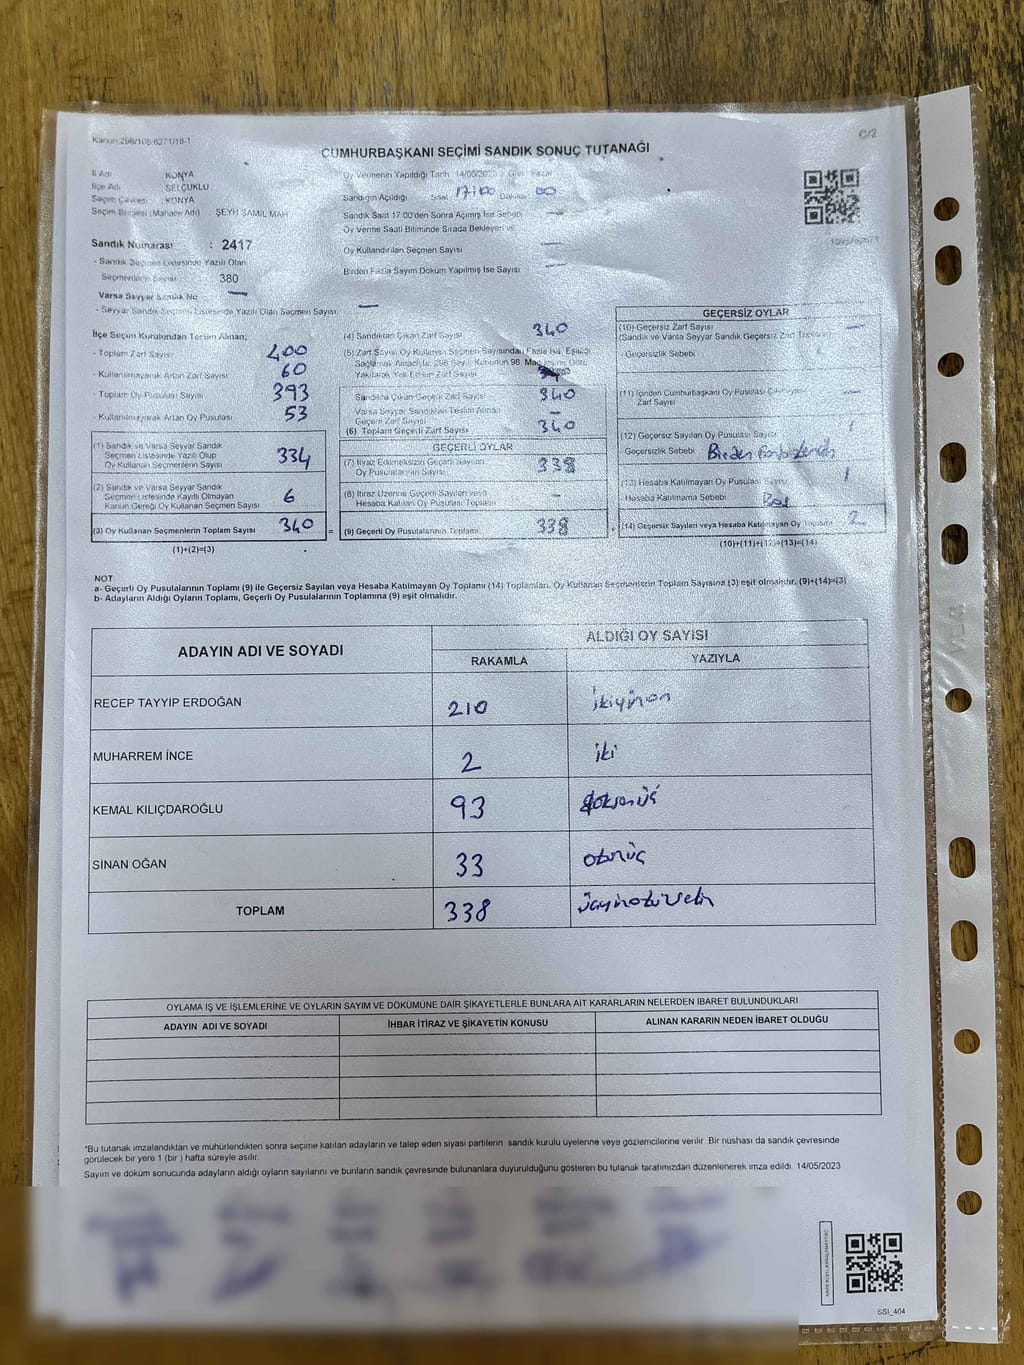 Kanun:298/105-6271/18-1
C/2
CUMHURBAŞKANI SEÇİMİ SANDIK SONUÇ TUTANAĞI
İl Adı KONYA
İlçe Adı SELÇUKLU
Seçim Çevresi KONYA
Seçim Bölgesi (Mahalle Adı) ŞEYH ŞAMİL MAH
Sandık Numarası : 2417
- Sandık Seçmen Listesinde Yazılı Olan
Seçmenlerin Sayısı 380
Varsa Seyyar Sandık No —
- Seyyar Sandık Seçmen Listesinde Yazılı Olan Seçmen Sayısı —
Oy Vermenin Yapıldığı Tarih 14/05/2023 Gün Pazar
Sandığın Açıldığı Saat 17:00 Dakika 00
Sandık Saat 17.00'den Sonra Açılmış İse Sebebi —
Oy Verme Saati Bitiminde Sırada Bekleyen ve
Oy Kullandırılan Seçmen Sayısı —
Birden Fazla Sayım Döküm Yapılmış İse Sayısı —
İlçe Seçim Kurulundan Teslim Alınan;
- Toplam Zarf Sayısı 400
- Kullanılmayarak Artan Zarf Sayısı 60
- Toplam Oy Pusulası Sayısı 393
- Kullanılmayarak Artan Oy Pusulası 53
(1) Sandık ve Varsa Seyyar Sandık
Seçmen Listesinde Yazılı Olup
Oy Kullanan Seçmenlerin Sayısı 334
(2) Sandık ve Varsa Seyyar Sandık
Seçmen Listesinde Kayıtlı Olmayan
Kanun Gereği Oy Kullanan Seçmen Sayısı 6
(3) Oy Kullanan Seçmenlerin Toplam Sayısı 340
(1)+(2)=(3)
(4) Sandıktan Çıkan Zarf Sayısı 340
(5) Zarf Sayısı Oy Kullanan Seçmen Sayısından Fazla İse, Eşitliği
Sağlamak Amacıyla, 298 Sayılı Kanunun 98. Maddesine Göre
Yakılarak Yok Edilen Zarf Sayısı
Sandıkta Çıkan Geçerli Zarf Sayısı 340
Varsa Seyyar Sandıktan Teslim Alınan
Geçerli Zarf Sayısı —
(6) Toplam Geçerli Zarf Sayısı 340
GEÇERLİ OYLAR
(7) İtiraz Edilmeksizin Geçerli Sayılan
Oy Pusulalarının Sayısı 338
(8) İtiraz Üzerine Geçerli Sayılan veya
Hesaba Katılan Oy Pusulası Toplamı —
(9) Geçerli Oy Pusulalarının Toplamı 338
GEÇERSİZ OYLAR
(10) Geçersiz Zarf Sayısı —
(Sandık ve Varsa Seyyar Sandık Geçersiz Zarf Toplamı)
Geçersizlik Sebebi
(11) İçinden Cumhurbaşkanı Oy Pusulası Çıkmayan
Zarf Sayısı —
(12) Geçersiz Sayılan Oy Pusulası Sayısı 1
Geçersizlik Sebebi Birden Fazla
(13) Hesaba Katılmayan Oy Pusulası Sayısı 1
Hesaba Katılmama Sebebi Boş
(14) Geçersiz Sayılan veya Hesaba Katılmayan Oy Toplamı 2
(10)+(11)+(12)+(13)=(14)
NOT
a- Geçerli Oy Pusulalarının Toplamı (9) ile Geçersiz Sayılan veya Hesaba Katılmayan Oy Toplamı (14) Toplamları, Oy Kullanan Seçmenlerin Toplam Sayısına (3) eşit olmalıdır. (9)+(14)=(3)
b- Adayların Aldığı Oyların Toplamı, Geçerli Oy Pusulalarının Toplamına (9) eşit olmalıdır.
ADAYIN ADI VE SOYADI
ALDIĞI OY SAYISI
RAKAMLA YAZIYLA
RECEP TAYYİP ERDOĞAN 210 ikiyüzon
MUHARREM İNCE 2 iki
KEMAL KILIÇDAROĞLU 93 doksanüç
SİNAN OĞAN 33 otuzüç
TOPLAM 338 üçyüzotuzsekiz
OYLAMA İŞ VE İŞLEMLERİNE VE OYLARIN SAYIM VE DÖKÜMÜNE DAİR ŞİKAYETLERLE BUNLARA AİT KARARLARIN NELERDEN İBARET BULUNDUKLARI
ADAYIN ADI VE SOYADI İHBAR İTİRAZ VE ŞİKAYETİN KONUSU ALINAN KARARIN NEDEN İBARET OLDUĞU
*Bu tutanak imzalandıktan ve mühürlendikten sonra seçime katılan adayların ve talep eden siyasi partilerin sandık kurulu üyelerine veya gözlemcilerine verilir. Bir nüshası da sandık çevresinde
görülecek bir yere 1 (bir) hafta süreyle asılır.
Sayım ve döküm sonucunda adayların aldığı oyların sayılarını ve bunların sandık çevresinde bulunanlara duyurulduğunu gösteren bu tutanak tarafımızdan düzenlenerek imza edildi. 14/05/2023
SSI_404